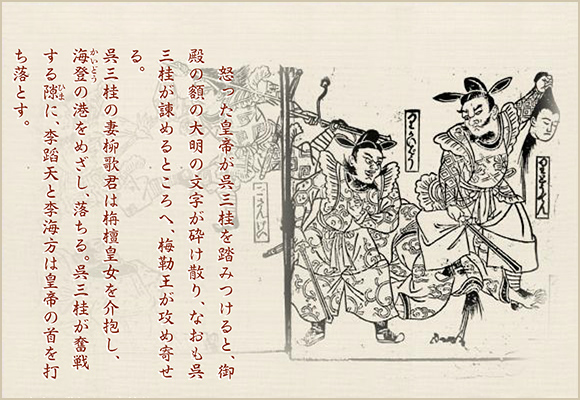 怒った皇帝が呉三桂を踏みつけると、御
殿の額の大明の文字が砕け散り、なおも呉
三桂が諫めるところへ、梅勒王が攻め寄せ
る。
呉三桂の妻柳歌君は栴檀皇女を介抱し、
海登の港をめざし、落ちる。呉三桂が奮戦
かいどう
する隙に、李蹈天と李海方は皇帝の首を打
ひま
ち落とす。